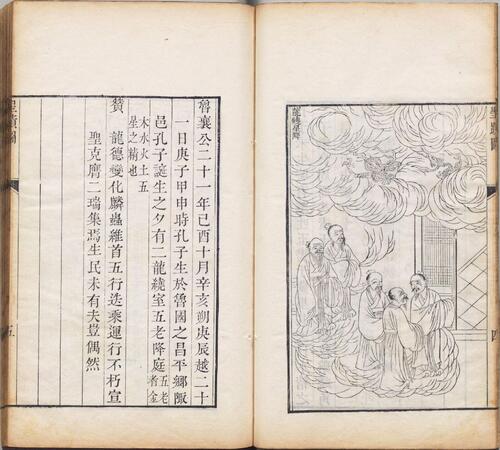 聖蹟圖
四
魯襄公二十一年己酉十月辛亥朔庚辰越二十
一日庚子甲申時孔子生於魯國之昌平鄉陬
邑孔子誕生之夕有二龍繞室五老降庭五老者金
木水火土五
星之精也
贊 龍德變化麟蟲維首五行迭乘運行不朽宣
聖克膺二瑞集焉生民未有夫豈偶然
聖蹟圖
五